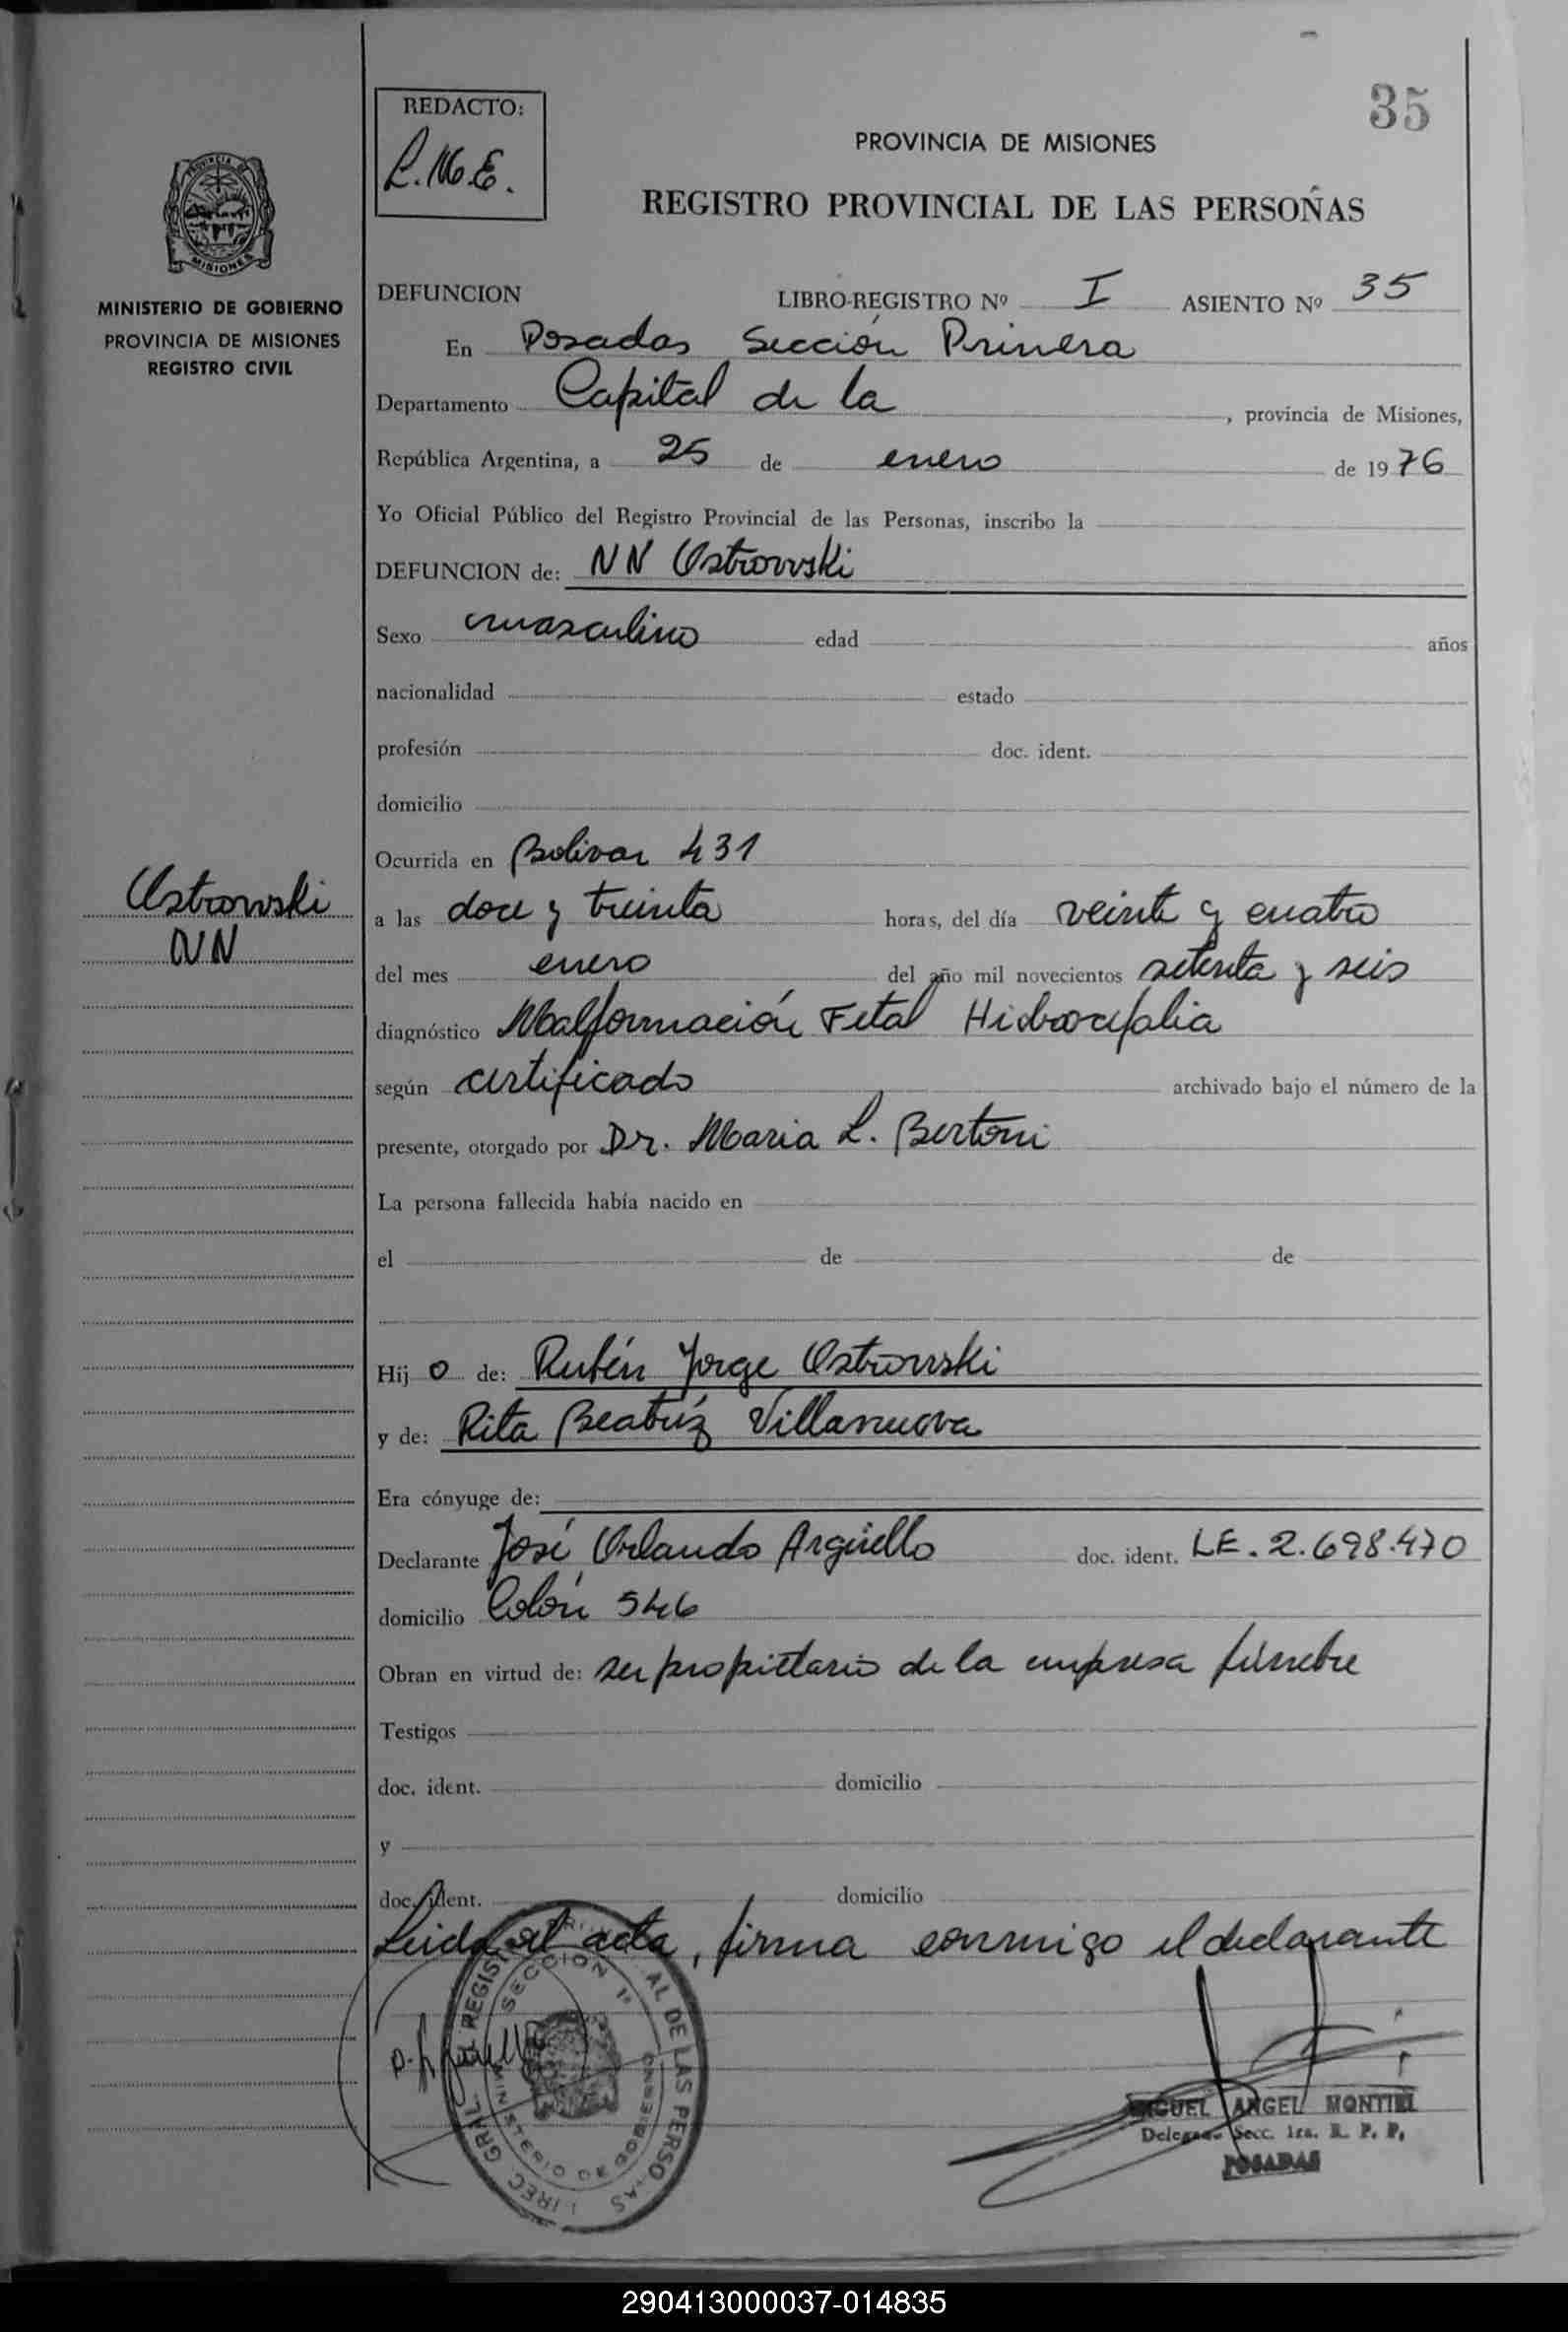 35
REDACTO:
L.M.E.
PROVINCIA DE MISIONES
REGISTRO PROVINCIAL DE LAS PERSOÑAS
PROVINCIA DE
MISIONES
MINISTERIO DE GOBIERNO
PROVINCIA DE MISIONES
REGISTRO CIVIL
DEFUNCION LIBRO-REGISTRO Nº I ASIENTO Nº 35
En Posadas Sección Primera
Departamento Capital de la , provincia de Misiones,
República Argentina, a 25 de enero de 1976
Yo Oficial Público del Registro Provincial de las Personas, inscribo la
DEFUNCION de: NN Ostrowski
Sexo masculino edad años
nacionalidad estado
profesión doc. ident.
domicilio
Ocurrida en Bolivar 431
Ostrowski
NN
a las doce y treinta horas, del día veinte y cuatro
del mes enero del año mil novecientos setenta y seis
diagnóstico Malformación Fetal Hidrocefalia
según certificado archivado bajo el número de la
presente, otorgado por Dr. Maria L. Bertoni
La persona fallecida había nacido en
el de de
Hijo de: Rubén Jorge Ostrowski
y de: Rita Beatríz Villanueva
Era cónyuge de:
Declarante José Orlando Argüello doc. ident. LE. 2.698.470
domicilio Colón 546
Obran en virtud de: ser propietario de la empresa fúnebre
Testigos
doc. ident. domicilio
y
doc. ident. domicilio
Leida el acta, firma conmigo el declarante
DIREC. GRAL. REGISTRO PROVINCIAL DE LAS PERSONAS
SECCION 1ª
MINISTERIO DE GOBIERNO
MIGUEL ANGEL MONTIEL
Delegado Secc. 1ra. R. P. P.
POSADAS
290413000037-014835